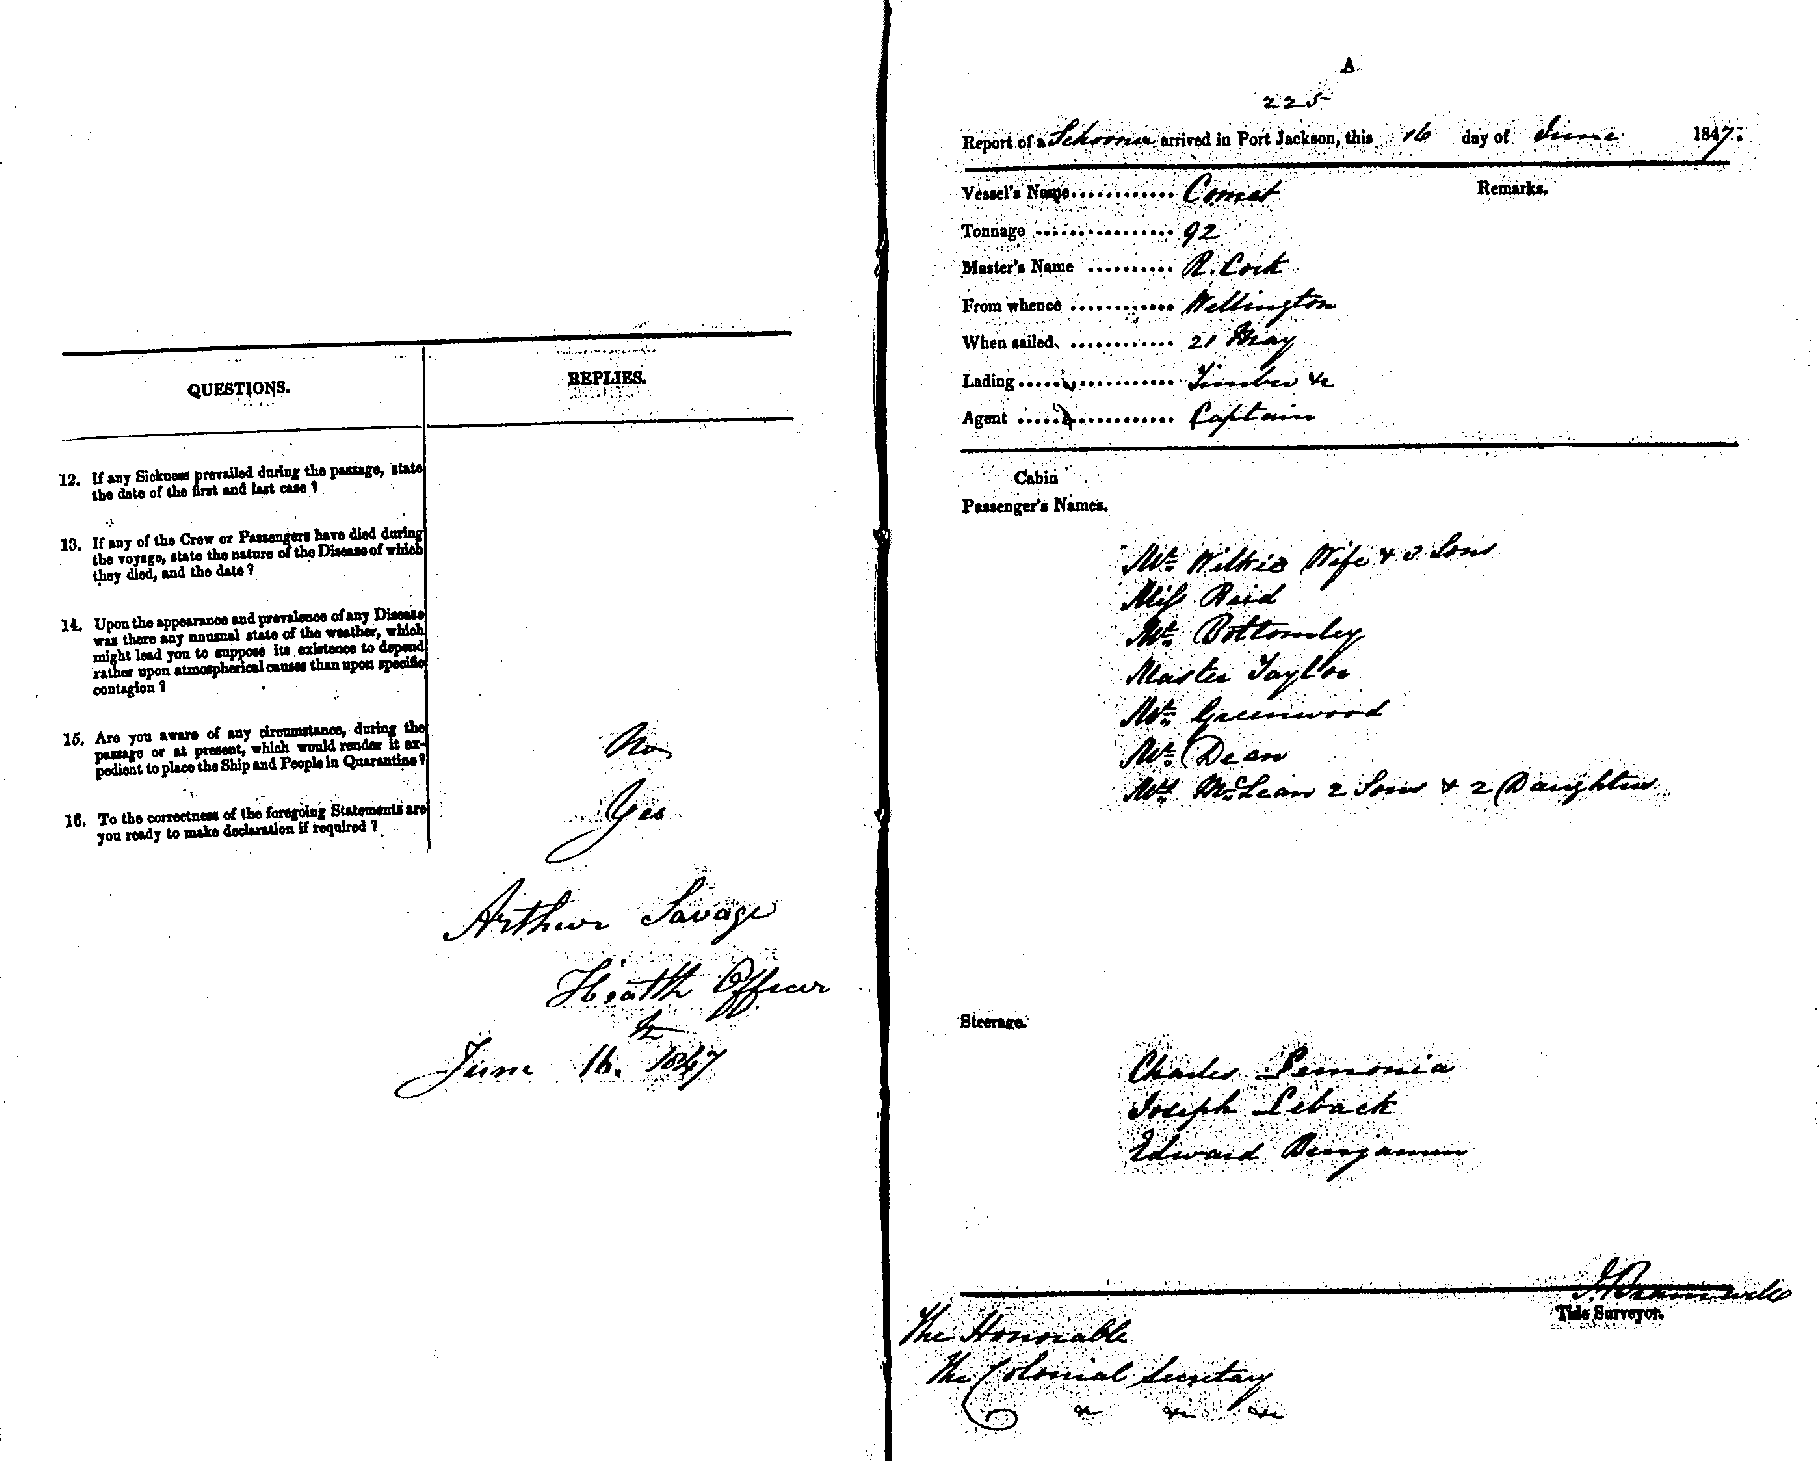 QUESTIONS.
REPLIES.
12. If any Sickness prevailed during the passage, state
the date of the first and last case ?
13. If any of the Crew or Passengers have died during
the voyage, state the nature of the Disease of which
they died, and the date ?
14. Upon the appearance and prevalence of any Disease
was there any unusual state of the weather, which
might lead you to suppose its existence to depend
rather upon atmospherical causes than upon specific
contagion ?
15. Are you aware of any circumstance, during the
passage or at present, which would render it ex-
pedient to place the Ship and People in Quarantine ?
No
16. To the correctness of the foregoing Statements are
you ready to make declaration if required ?
Yes
Arthur Savage
Health Officer
June 16. 1847
A
225
Report of a Schooner arrived in Port Jackson, this 16 day of June 1847.
Vessel's Name............ Comet
Remarks.
Tonnage ................ 92
Master's Name .......... R. Cork
From whence ............ Wellington
When sailed. ............ 21 May
Lading.................. Timber &c
Agent .................. Captain
Cabin
Passenger's Names.
Mr. Wilkie Wife & 3 Sons
Miss Reid
Mr. Bottomley
Master Taylor
Mr. Greenwood
Mr. Dean
Mrs. McLean 2 Sons & 2 Daughters
Steerage.
Charles Lemonia
Joseph Leback
Edward Benjamin
Tide Surveyor.
The Honorable
The Colonial Secretary
&c &c &c